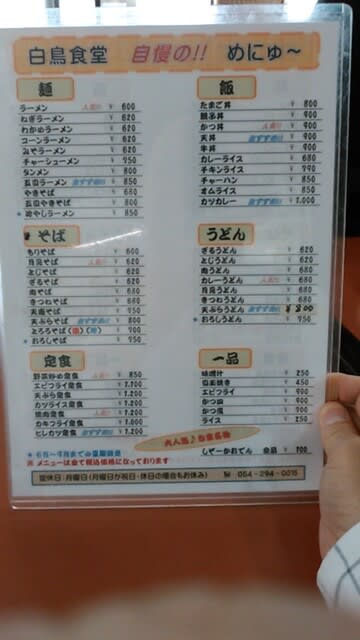 白鳥食堂 自慢の!! めにゅ～
麺
ラーメン 人気!! ¥ 600
ねぎラーメン ¥ 620
わかめラーメン ¥ 620
コーンラーメン ¥ 620
みそラーメン ¥ 620
チャーシューメン ¥ 750
タンメン ¥ 800
五目ラーメン おすすめ!! ¥ 850
やきそば ¥ 680
五目やきそば ¥ 800
* 冷やしラーメン ¥ 850
飯
たまご丼 ¥ 800
親子丼 ¥ 900
かつ丼 人気!! ¥ 900
天丼 おすすめ!! ¥ 900
牛丼 ¥ 900
カレーライス ¥ 680
チキンライス ¥ 790
チャーハン ¥ 680
オムライス ¥ 850
カツカレー おすすめ!! ¥ 1,000
そば
もりそば ¥ 600
月見そば 人気!! ¥ 620
とじそば ¥ 620
ざるそば ¥ 620
肉そば ¥ 680
きつねそば ¥ 680
天南そば ¥ 750
天ぷらそば おすすめ!! ¥ 800
とろろそば (温) (冷) ¥ 900
* おろしそば ¥ 750
うどん
ざるうどん ¥ 620
とじうどん ¥ 620
肉うどん ¥ 680
カレーうどん 人気!! ¥ 680
月見うどん ¥ 620
きつねうどん ¥ 680
天ぷらうどん おすすめ!! ¥ 800
* おろしうどん ¥ 750
定食
野菜炒め定食 人気!! ¥ 850
エビフライ定食 ¥ 1,200
天ぷら定食 ¥ 1,200
カツライス定食 ¥ 1,200
焼肉定食 人気!! ¥ 1,200
カキフライ定食 ¥ 1,000
ヒレカツ定食 おすすめ!! ¥ 1,200
一品
味噌汁 ¥ 250
塩釜焼き ¥ 450
エビフライ ¥ 900
かつ皿 ¥ 900
かつ煮 ¥ 900
ライス ¥ 250
大人気♪
しぞーかおでん 全品 ¥ 100
* 6月～9月まで の夏期限定
※ メニューは全て税込価格になっております
定休日:月曜日(月曜日が祝日・休日の場合もお休み) Tel 054-294-0015